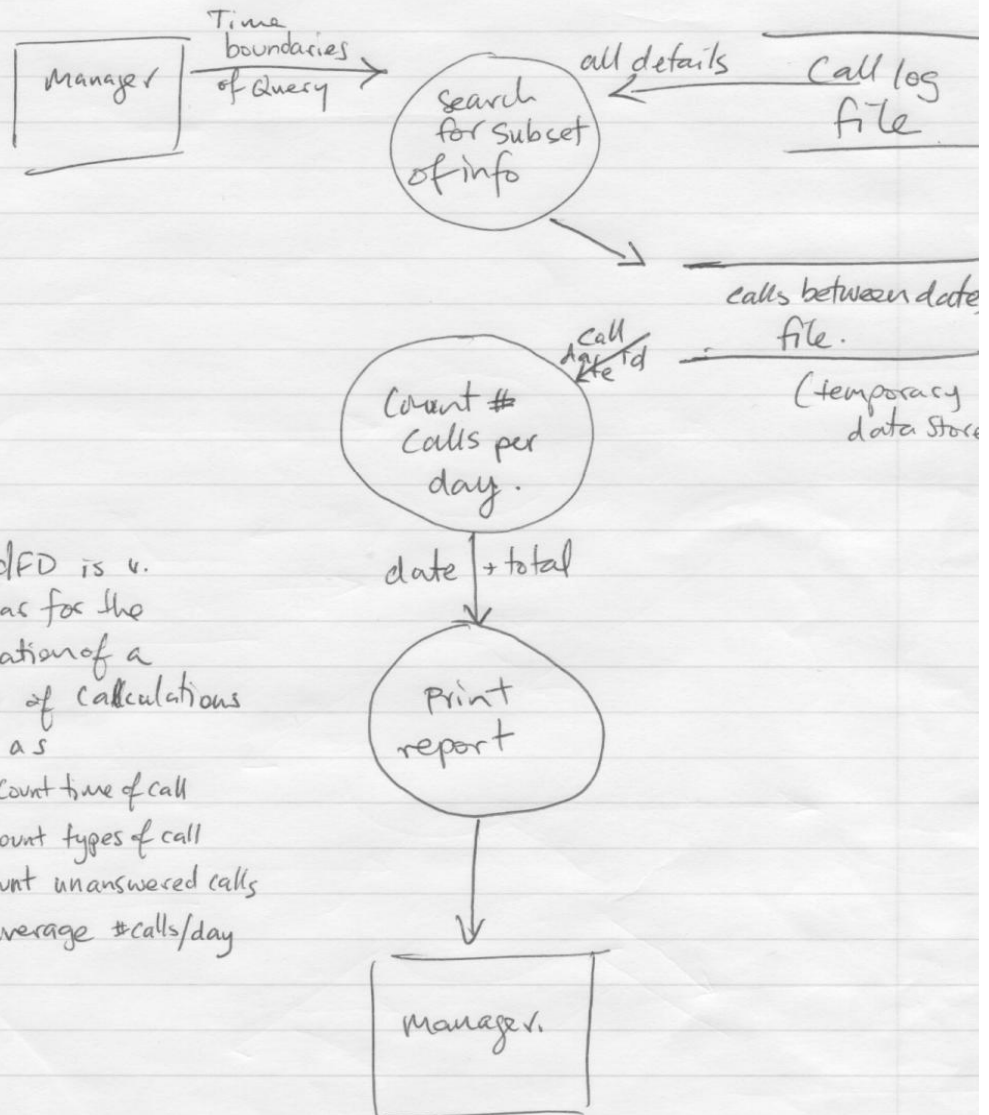 Time
boundaries
of Query
Manager
search
for subset
of info
all details
Call log
file
calls between date
file.
(temporary
data store
call
date id
Count #
Calls per
day.
date + total
dFD is v.
as for the
ation of a
of Calculations
as
Count time of call
ount types of call
unt unanswered calls
verage #calls/day
Print
report
Manager.